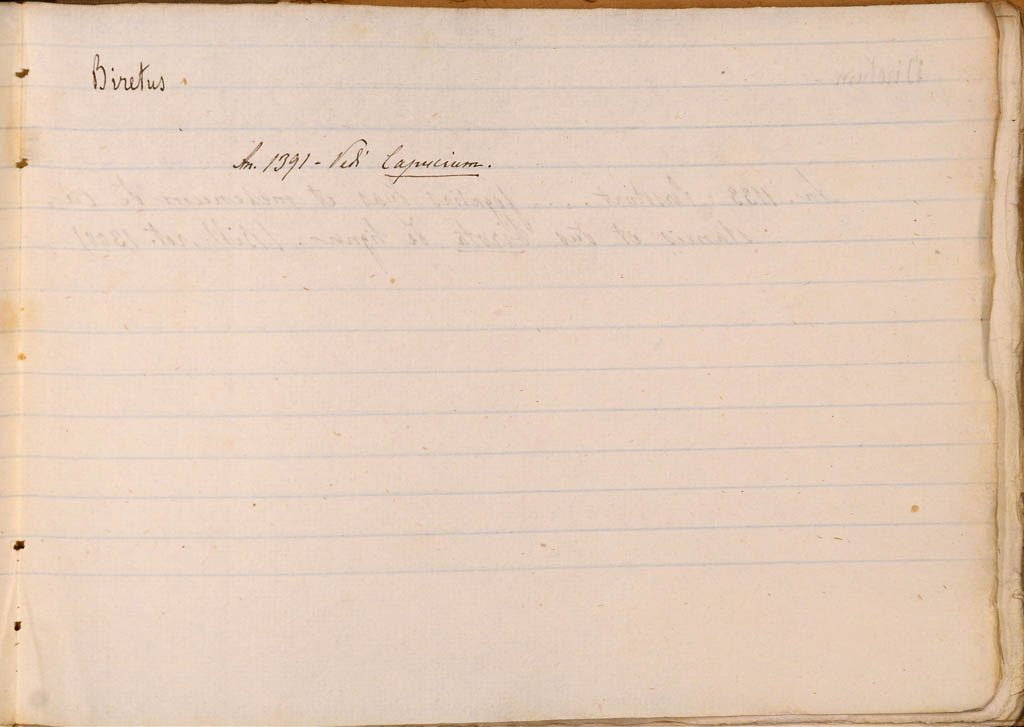 Biretus
An. 1391 - Vedi Capucium.